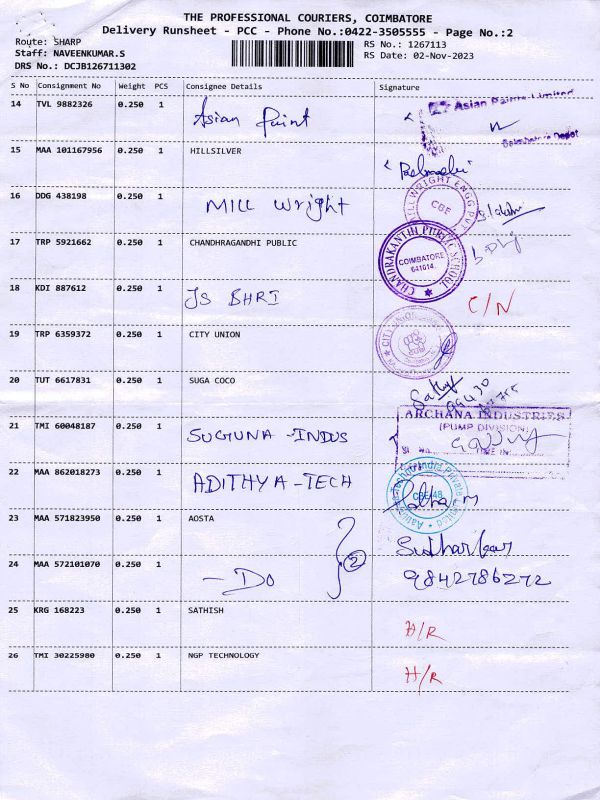 THE PROFESSIONAL COURIERS, COIMBATORE
Delivery Runsheet - PCC - Phone No.:0422-3505555 - Page No.:2
Route: SHARP
Staff: NAVEENKUMAR.S
DRS No.: DCJB126711302
RS No.: 1267113
RS Date: 02-Nov-2023
S No Consignment No Weight PCS Consignee Details Signature
14 TVL 9882326 0.250 1 Asian Paint Asian Paints Limited
Depot
15 MAA 101167956 0.250 1 HILLSILVER
16 DDG 438198 0.250 1 MILL Wright MILLWRIGHT ENGG PVT CBE
17 TRP 5921662 0.250 1 CHANDHRAGANDHI PUBLIC CHANDRAKANTHI PUBLIC SCHOOL COIMBATORE 641014
18 KDI 887612 0.250 1 JS BHRI C/N
19 TRP 6359372 0.250 1 CITY UNION CITY UNION
20 TUT 6617831 0.250 1 SUGA COCO Sathy
21 TMI 60048187 0.250 1 SUGUNA-INDUS ARCHANA INDUSTRIES
(PUMP DIVISION)
22 MAA 862018273 0.250 1 ADITHYA-TECH Private Limited CBE-48
23 MAA 571823950 0.250 1 AOSTA
24 MAA 572101070 0.250 1 -DO 2 9842786272
25 KRG 168223 0.250 1 SATHISH H/R
26 TMI 30225980 0.250 1 NGP TECHNOLOGY H/R